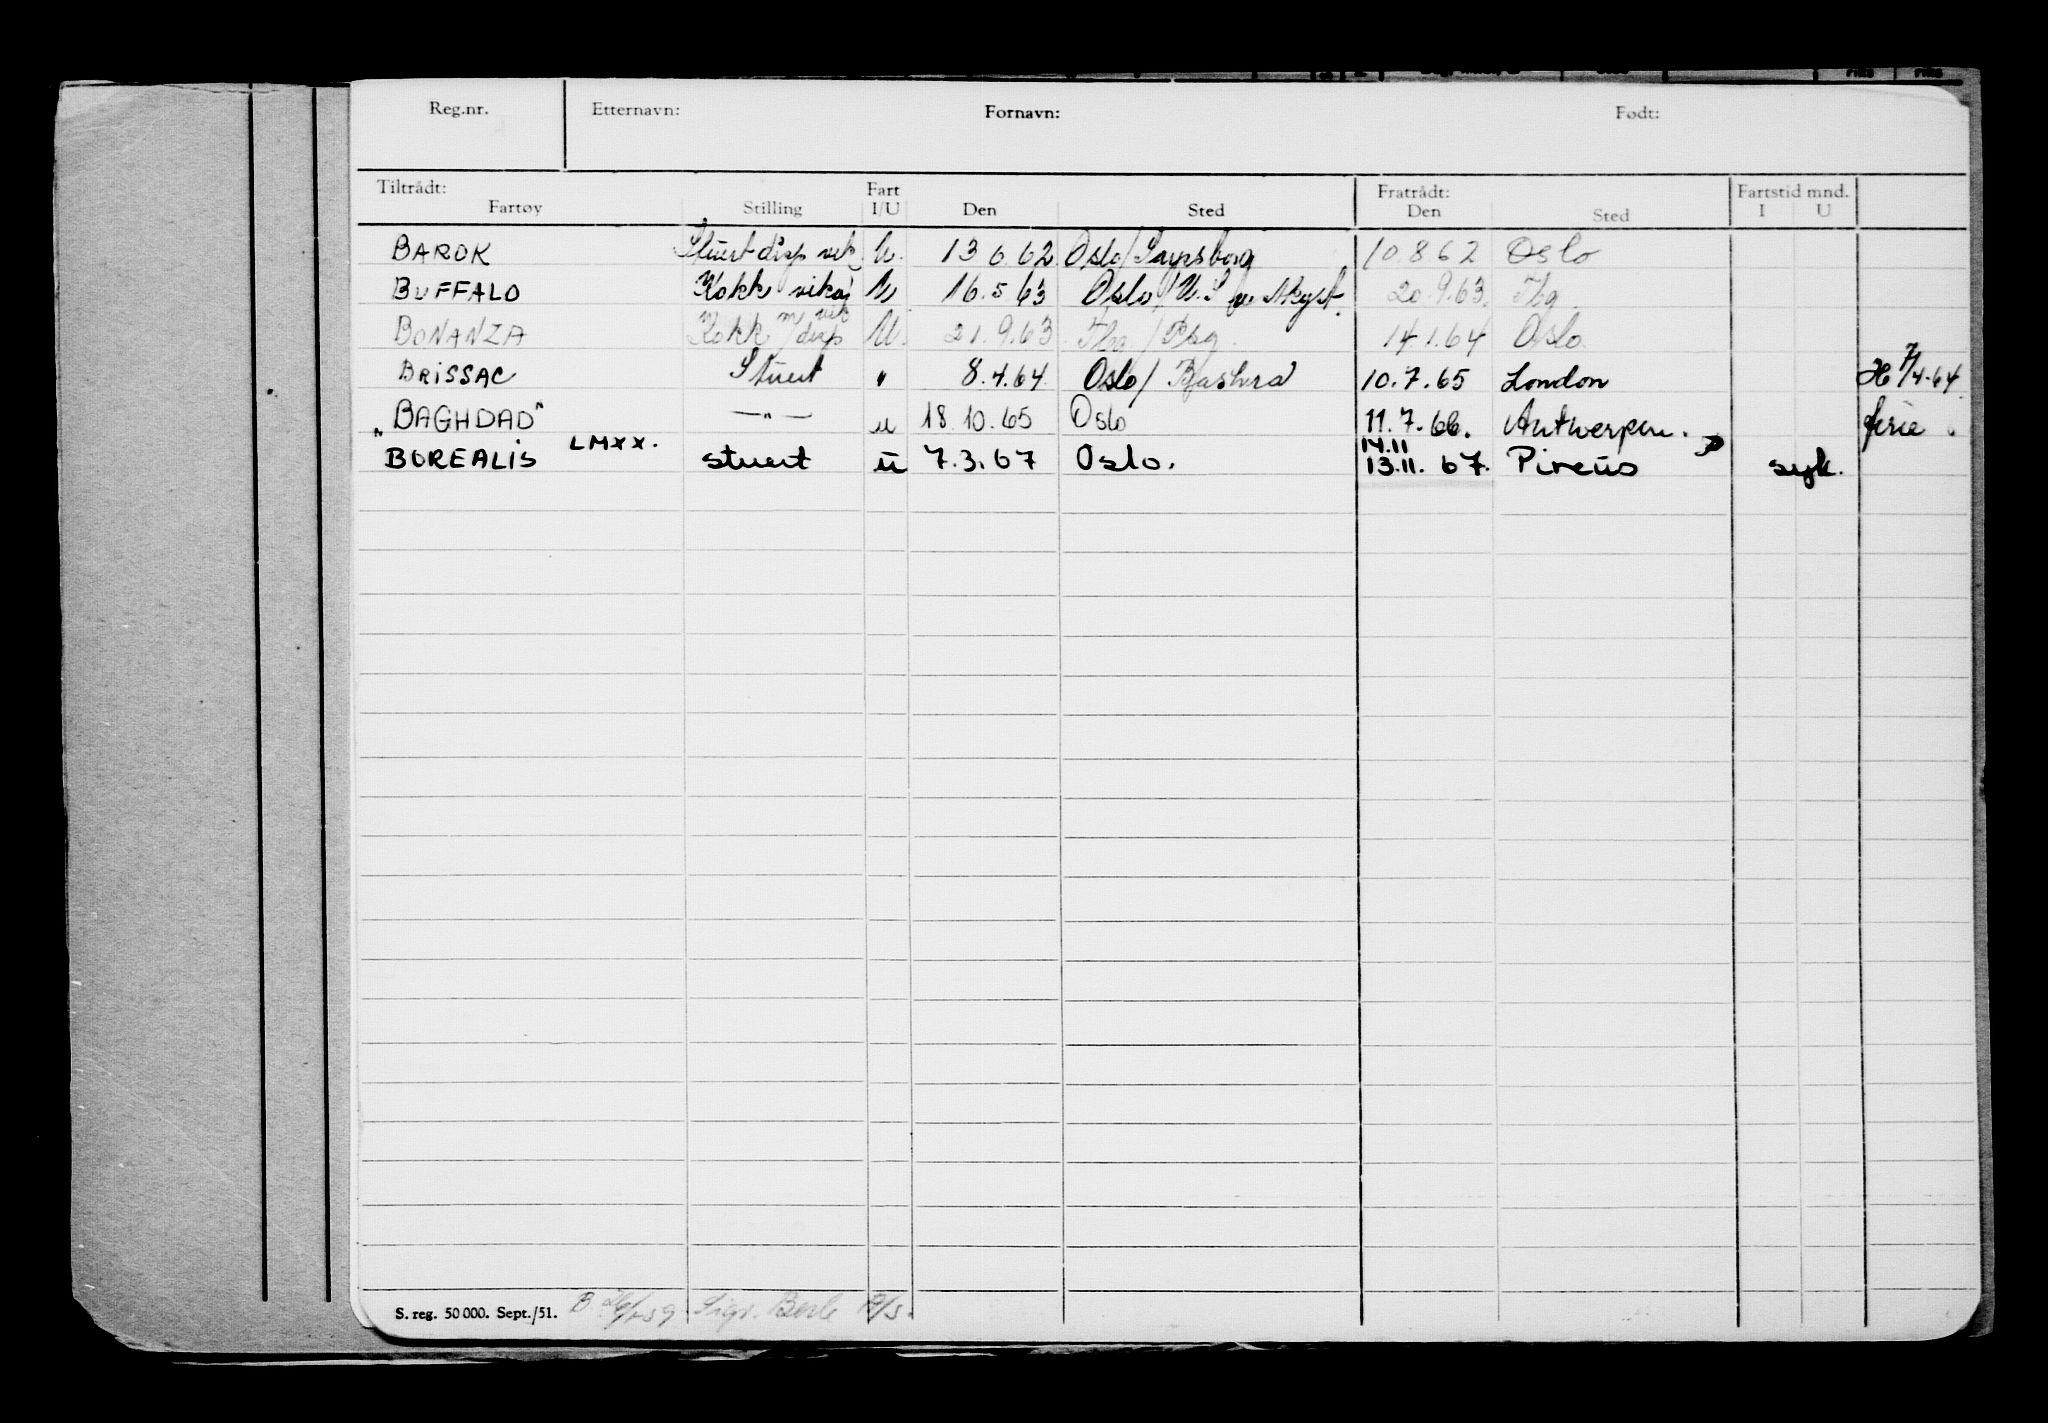 Reg.nr. Etternavn: Fornavn: Født:
Tiltrådt: Fart Fratrådt: Fartstid mnd.
Fartøy Stilling I/U Den Sted Den Sted I U
BAROK Stuert disp vik U. 13 6 62 Oslo/Sarpsborg 10.8 62 Oslo
BUFFALO Kokk vikar U 16.5 63 Oslo/U.S v. 20.9.63.
BONANZA Kokk m/disp vik U. 21.9.63 14.1.64 Oslo
BRISSAC Stuert " 8.4.64 Oslo/ Bashra 10.7.65 London 7/4-64
"BAGHDAD" —"— u 18.10.65 Oslo 11.7.66. Antwerpen. ferie.
BOREALIS LMXX. stuert u 7.3.67 Oslo. 14.11 13.11.67. Pireus syk.
S. reg. 50 000. Sept./51.